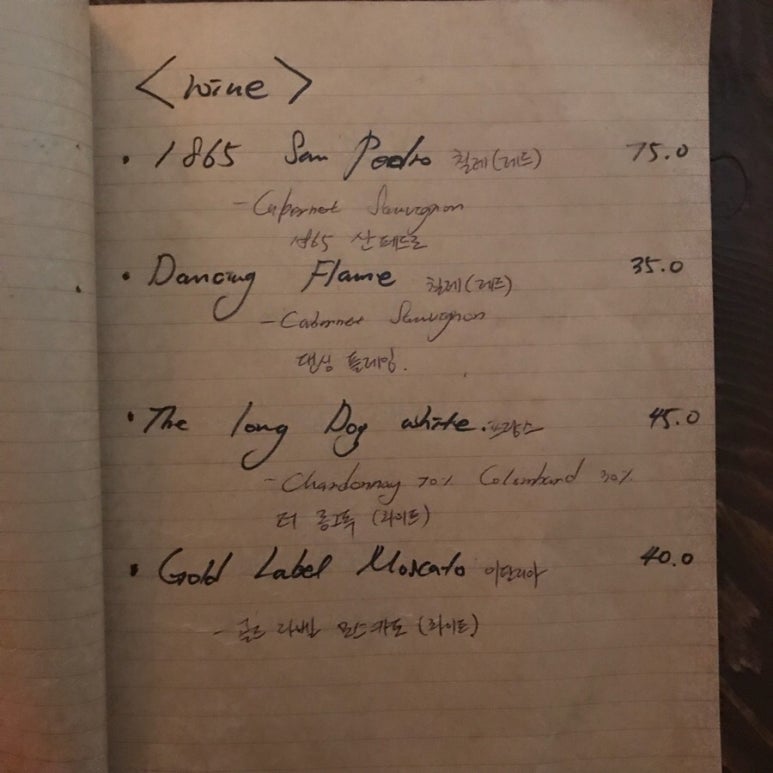 <wine>
• 1865 San Pedro 칠레(레드) 75.0
- Cabernet Sauvignon
1865 산페드로
• Dancing Flame 칠레(레드) 35.0
- Cabernet Sauvignon
댄싱 플레임.
• The long Dog white. 프랑스 45.0
- Chardonnay 70% Colombard 30%
더 롱독 (화이트)
• Gold Label Moscato 이탈리아 40.0
- 골드 라벨 모스카토 (화이트)